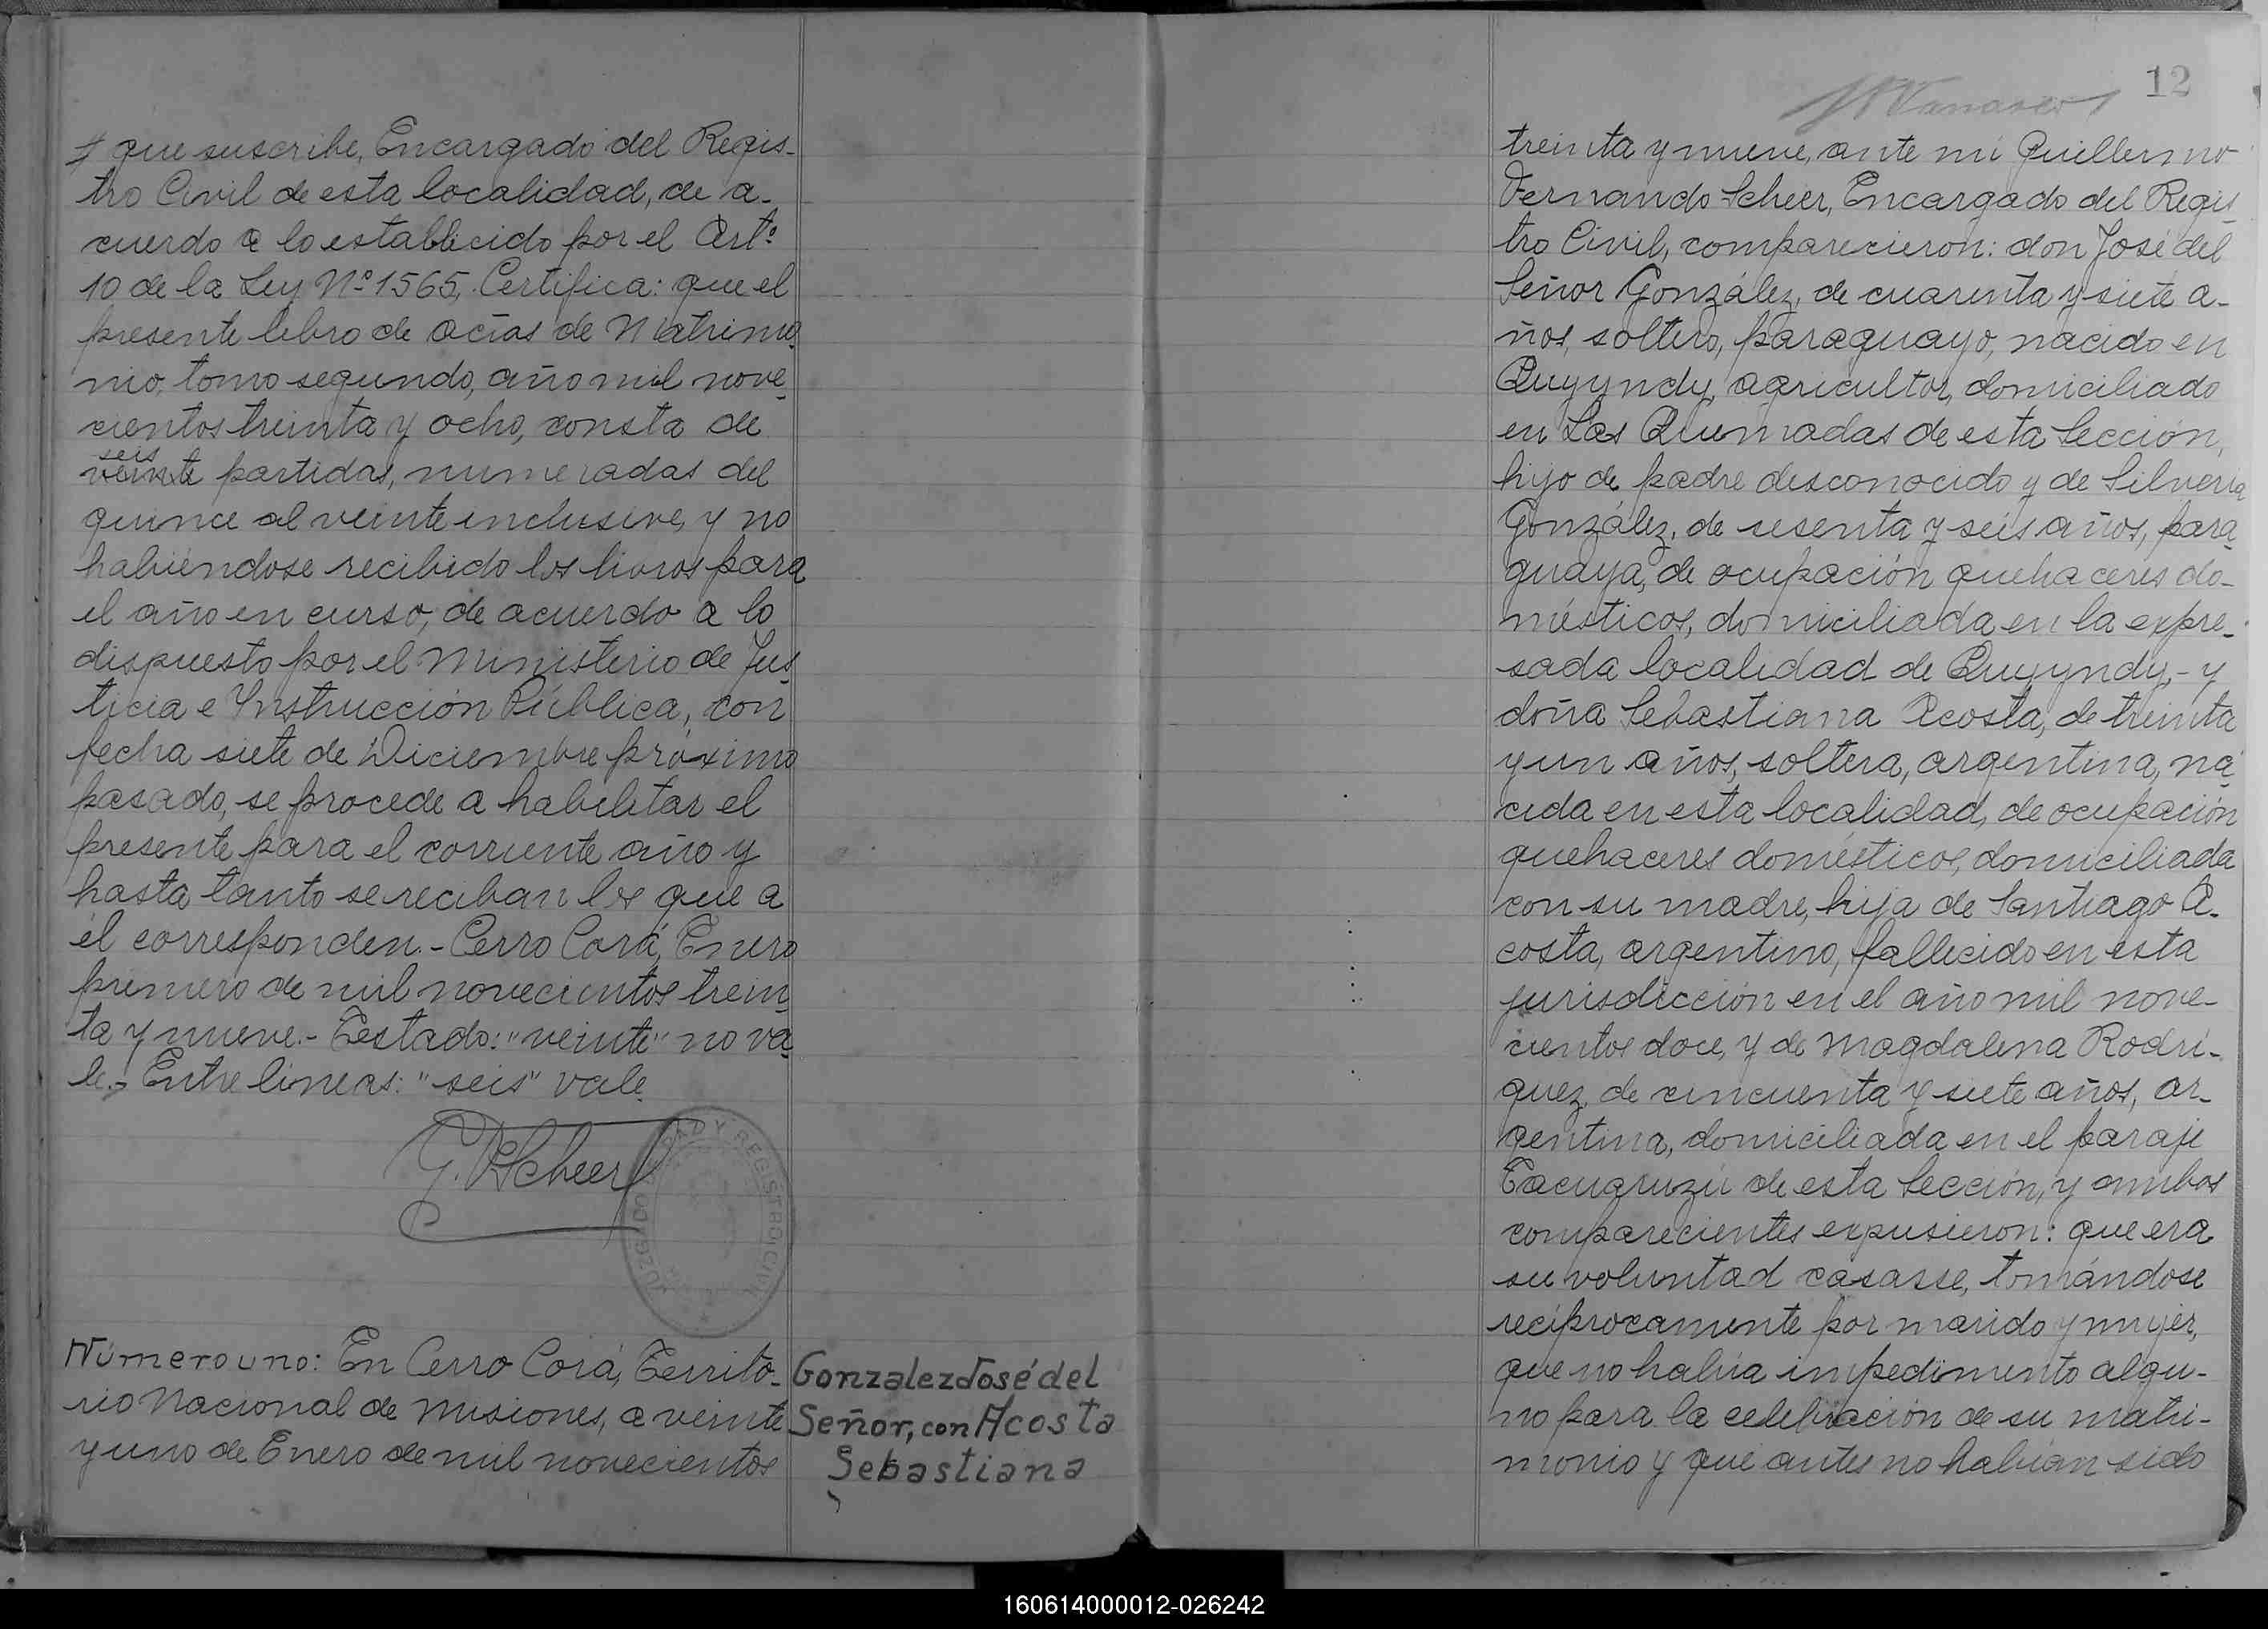 que suscribe, Encargado del Regis-
tro Civil de esta localidad, de a-
cuerdo a lo establecido por el Art.º
10 de la Ley Nº 1565, Certifica: que el
presente libro de actas de Matrimo-
nio, tomo segundo, año mil nove-
cientos treinta y ocho, consta de
seis
veinte partidas, numeradas del
quince al veinte inclusive, y no
habiéndose recibido los libros para
el año en curso, de acuerdo a lo
dispuesto por el Ministerio de Jus-
ticia e Ynstrucción Pública, con
fecha siete de Diciembre próximo
pasado, se procede a habilitar el
presente para el corriente año y
hasta tanto se reciban los que a
él corresponden.- Cerro Corá, Enero
primero de mil novecientos trein-
ta y nueve.- Testado: "veinte" no va-
le.- Entre líneas: "seis" vale.
G. F. Scheer
JUZGADO DE PAZ Y REGISTRO CIVIL
Número uno: En Cerro Corá, Territo-
rio Nacional de Misiones, a veinte
y uno de Enero de mil novecientos
Gonzalez José del
Señor, con Acosta
Sebastiana
12
treinta y nueve, ante mi Guillermo
Fernando Scheer, Encargado del Regis-
tro Civil, comparecieron: don José del
Señor González, de cuarenta y siete a-
ños, soltero, paraguayo, nacido en
Quyyndy, agricultor, domiciliado
en Las Quemadas de esta Sección,
hijo de padre desconocido y de Silveria
González, de sesenta y seis años, para-
guaya, de ocupación quehaceres do-
mésticos, domiciliada en la expre-
sada localidad de Quyyndy,- y
doña Sebastiana Acosta, de treinta
y un años, soltera, argentina, na-
cida en esta localidad, de ocupación
quehaceres domésticos, domiciliada
con su madre, hija de Santiago A-
costa, argentino, fallecido en esta
jurisdicción en el año mil nove-
cientos doce, y de Magdalena Rodrí-
guez, de cincuenta y siete años, ar-
gentina, domiciliada en el paraje
Tacuaruzú de esta Sección, y ambos
comparecientes expusieron: que era
su voluntad casasse, tomándose
recíprocamente por marido y mujer,
que no había impedimento algu-
no para la celebración de su matri-
monio y que antes no habían sido
160614000012-026242